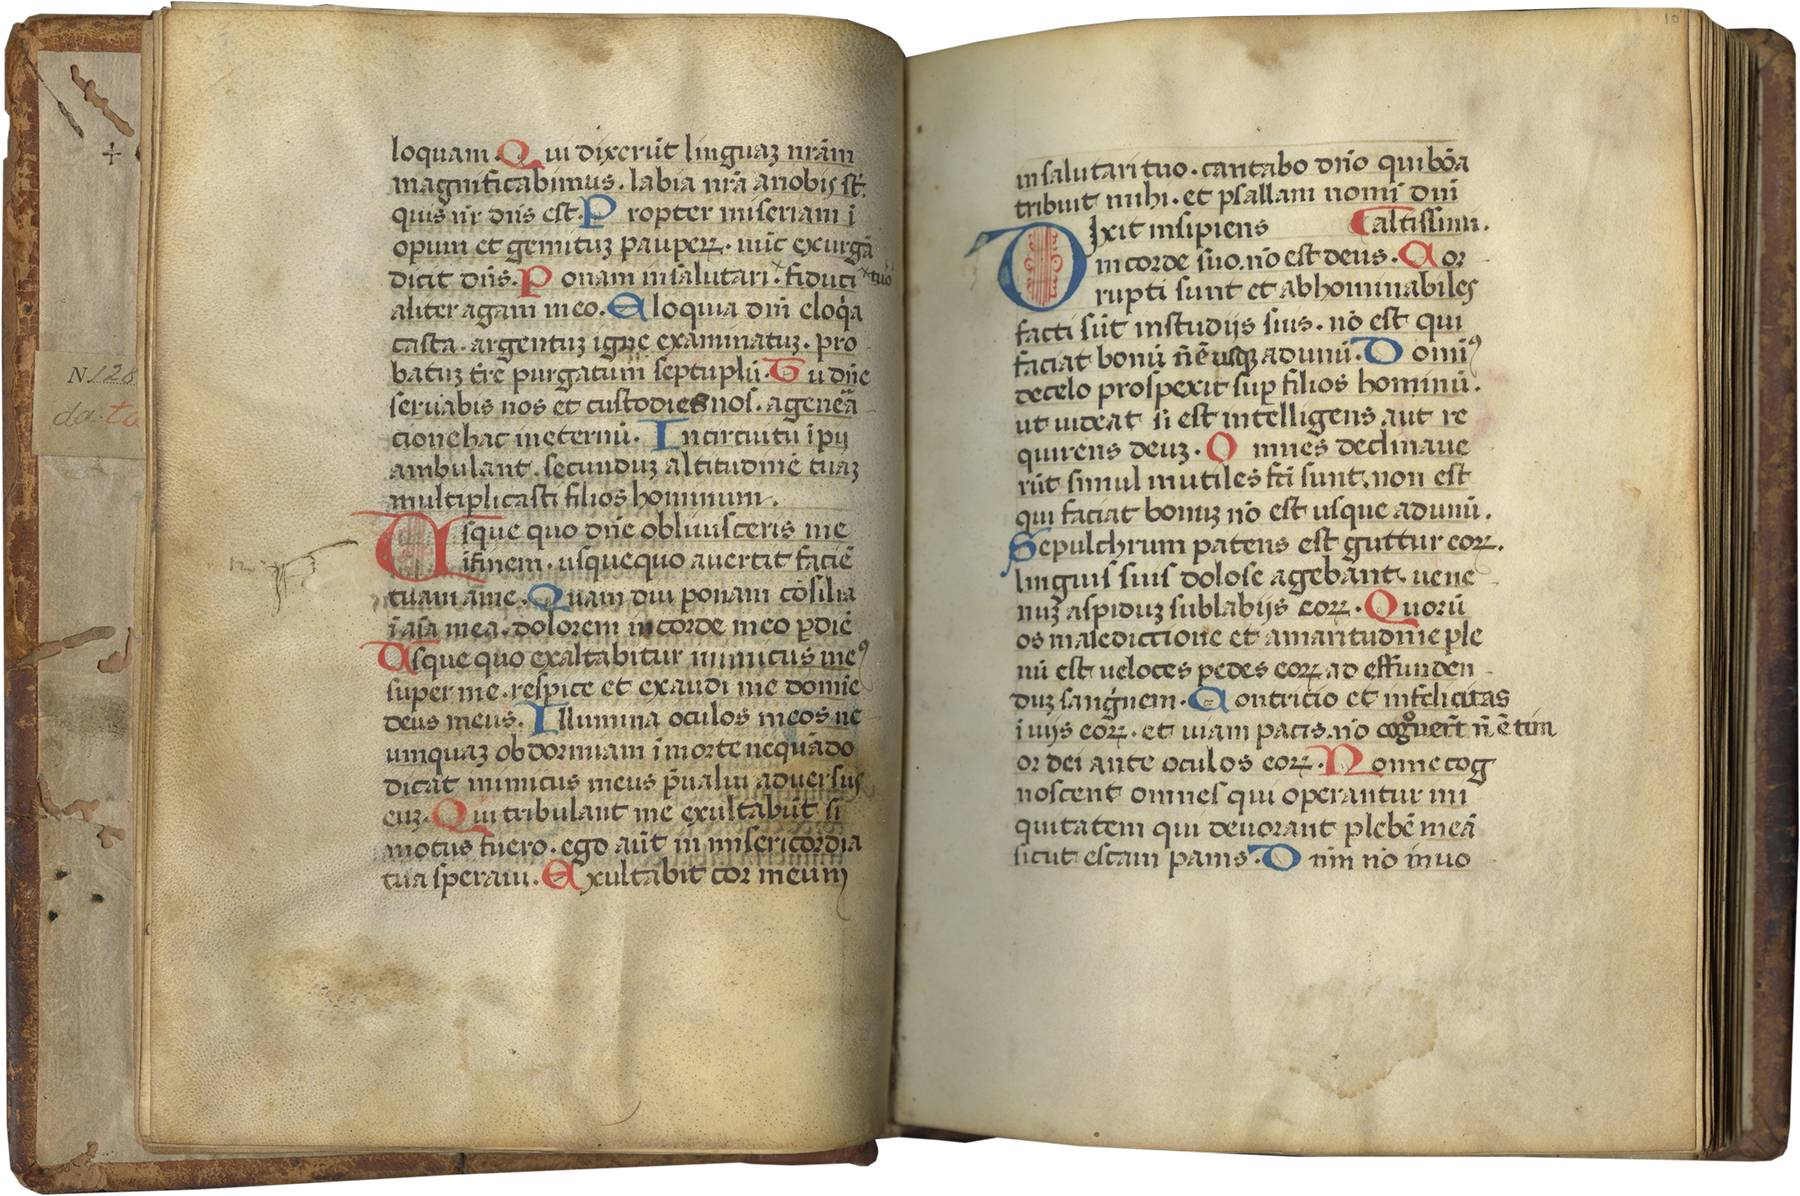 N. 128
da. to
loquam. Qui dixerūt linguaꝫ nrām
magnificabimus. labia nrā anobis st̄.
quis nr̄ dn̄s est. Propter miseriam ī
opum et gemituꝫ pauperꝝ. nūc exurgā
dicit dn̄s. Ponam insalutari. fiduci tuo
aliter agam ineo. Eloquia dnī eloq̇a
casta. argentuꝫ igne examinatuꝫ. pro
batuꝫ tr̄e purgatum septuplū. Tu dn̄e
seruabis nos et custodies nos. agenēa
cione hac ineternū. Incircuitu īpij
ambulant. secunduꝫ altitudinē tuaꝫ
multiplicasti filios hominum.
Usque quo dn̄e obliuisceris me
īfinem. usquequo auertit faciē
tuam ame. Quam diu ponam cōsilia
ī aīa mea. dolorem in corde meo ꝑdiē
Usque quo exaltabitur inimicus meꝰ
super me. respice et exaudi me domīe
deus meus. Illumina oculos meos ne
umquaꝫ obdormiam ī morte nequādo
dicat inimicus meus p̄ualui aduersus
euꝫ. Qui tribulant me exultabūt si
motus fuero. ego aūt in misericordia
tua speraui. Exultabit cor meum
10
insalutari tuo. cantabo dnō qui bōa
tribuit mihi. et psallam nomī dnī
altissimi.
Dixit insipiens
in corde suo. nō est deus. Cor
rupti sunt et abhominabiles
facti sūt instudijs suis. nō est qui
faciat bonū n̄ ē usqꝫ adunū. Domīꝰ
decelo prospexit suꝑ filios hominū.
ut uideat si est intelligens aut re
quirens deuꝫ. Omnes declinaue
rūt simul inutiles fcī sunt. non est
qui faciat bonuꝫ nō est usque adunū.
Sepulchrum patens est guttur eoꝝ.
linguis suis dolose agebant. uene
nuꝫ aspiduꝫ sublabijs eoꝝ. Quorū
os maledictione et amaritudine ple
nū est ueloces pedes eoꝝ ad effunden
duꝫ sang̍nem. Contritio et infelicitas
ī uijs eoꝝ. et uiam pacis nō cogͦuerūt n̄ ē tim
or dei ante oculos eoꝝ. Nonne cog
noscent omnes qui operantur ini
quitatem qui deuorant plebē meā
sicut escam panis. Dnm nō inuo